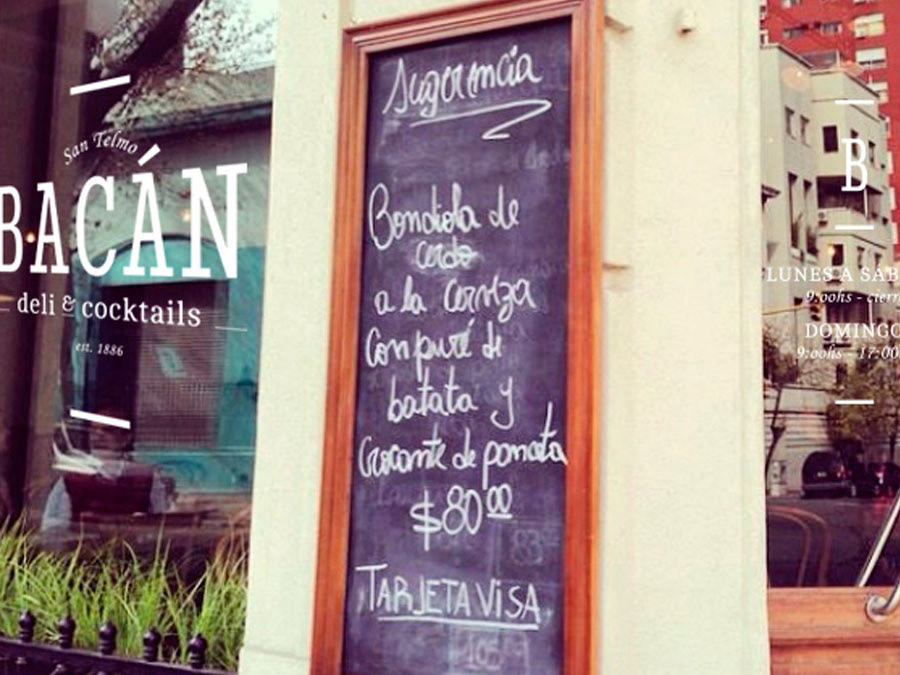 San Telmo
BACÁN
deli & cocktails
est. 1886
Sugerencia
Bondiola de
cerdo
a la Cerveza
Con puré de
batata y
Crocante de panceta
$80⁰⁰
TARJETA VISA
B
LUNES A SÁB
9:00hs - cierr
DOMINGO
9:00hs - 17:00